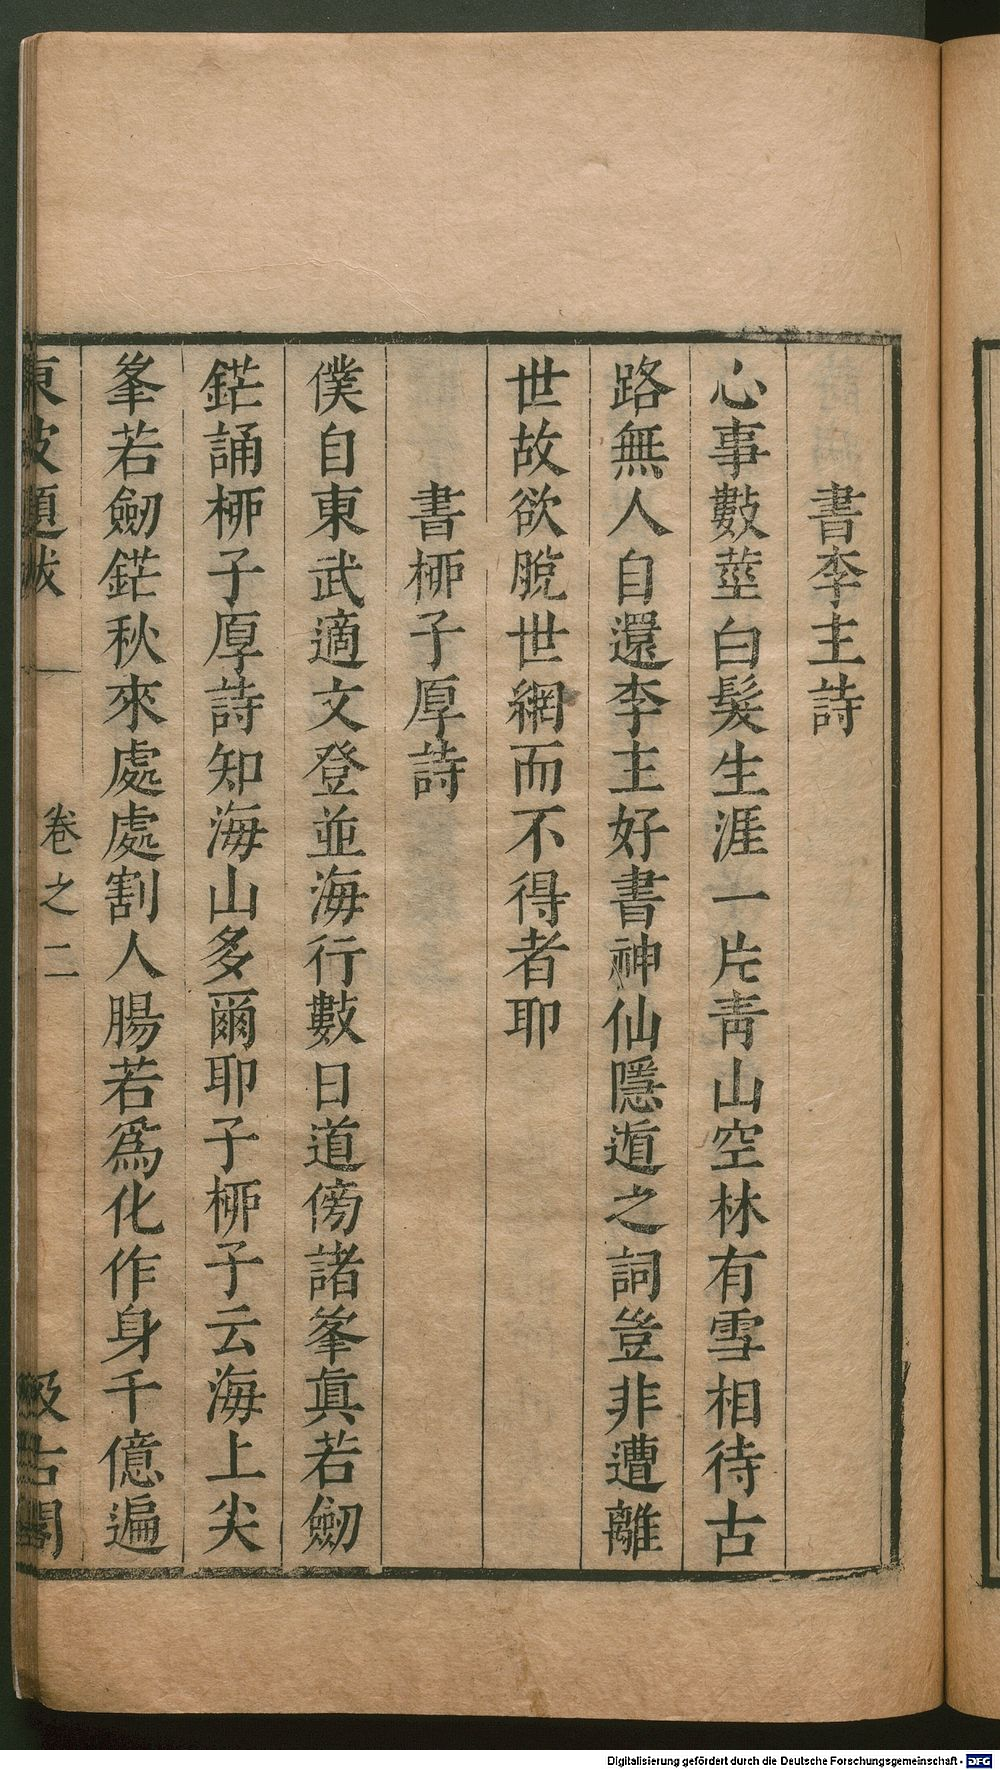 書李主詩
心事數莖白髮生涯一片青山空林有雪相待古
路無人自還李主好書神仙隱遁之詞豈非遭離
世故欲脫世網而不得者耶
書栁子厚詩
僕自東武適文登並海行數日道傍諸峯眞若劒
鋩誦栁子厚詩知海山多爾耶子栁子云海上尖
峯若劒鋩秋來處處割人腸若爲化作身千億遍
東坡題跋 卷之二 汲古閣
Digitalisierung gefördert durch die Deutsche Forschungsgemeinschaft - DFG